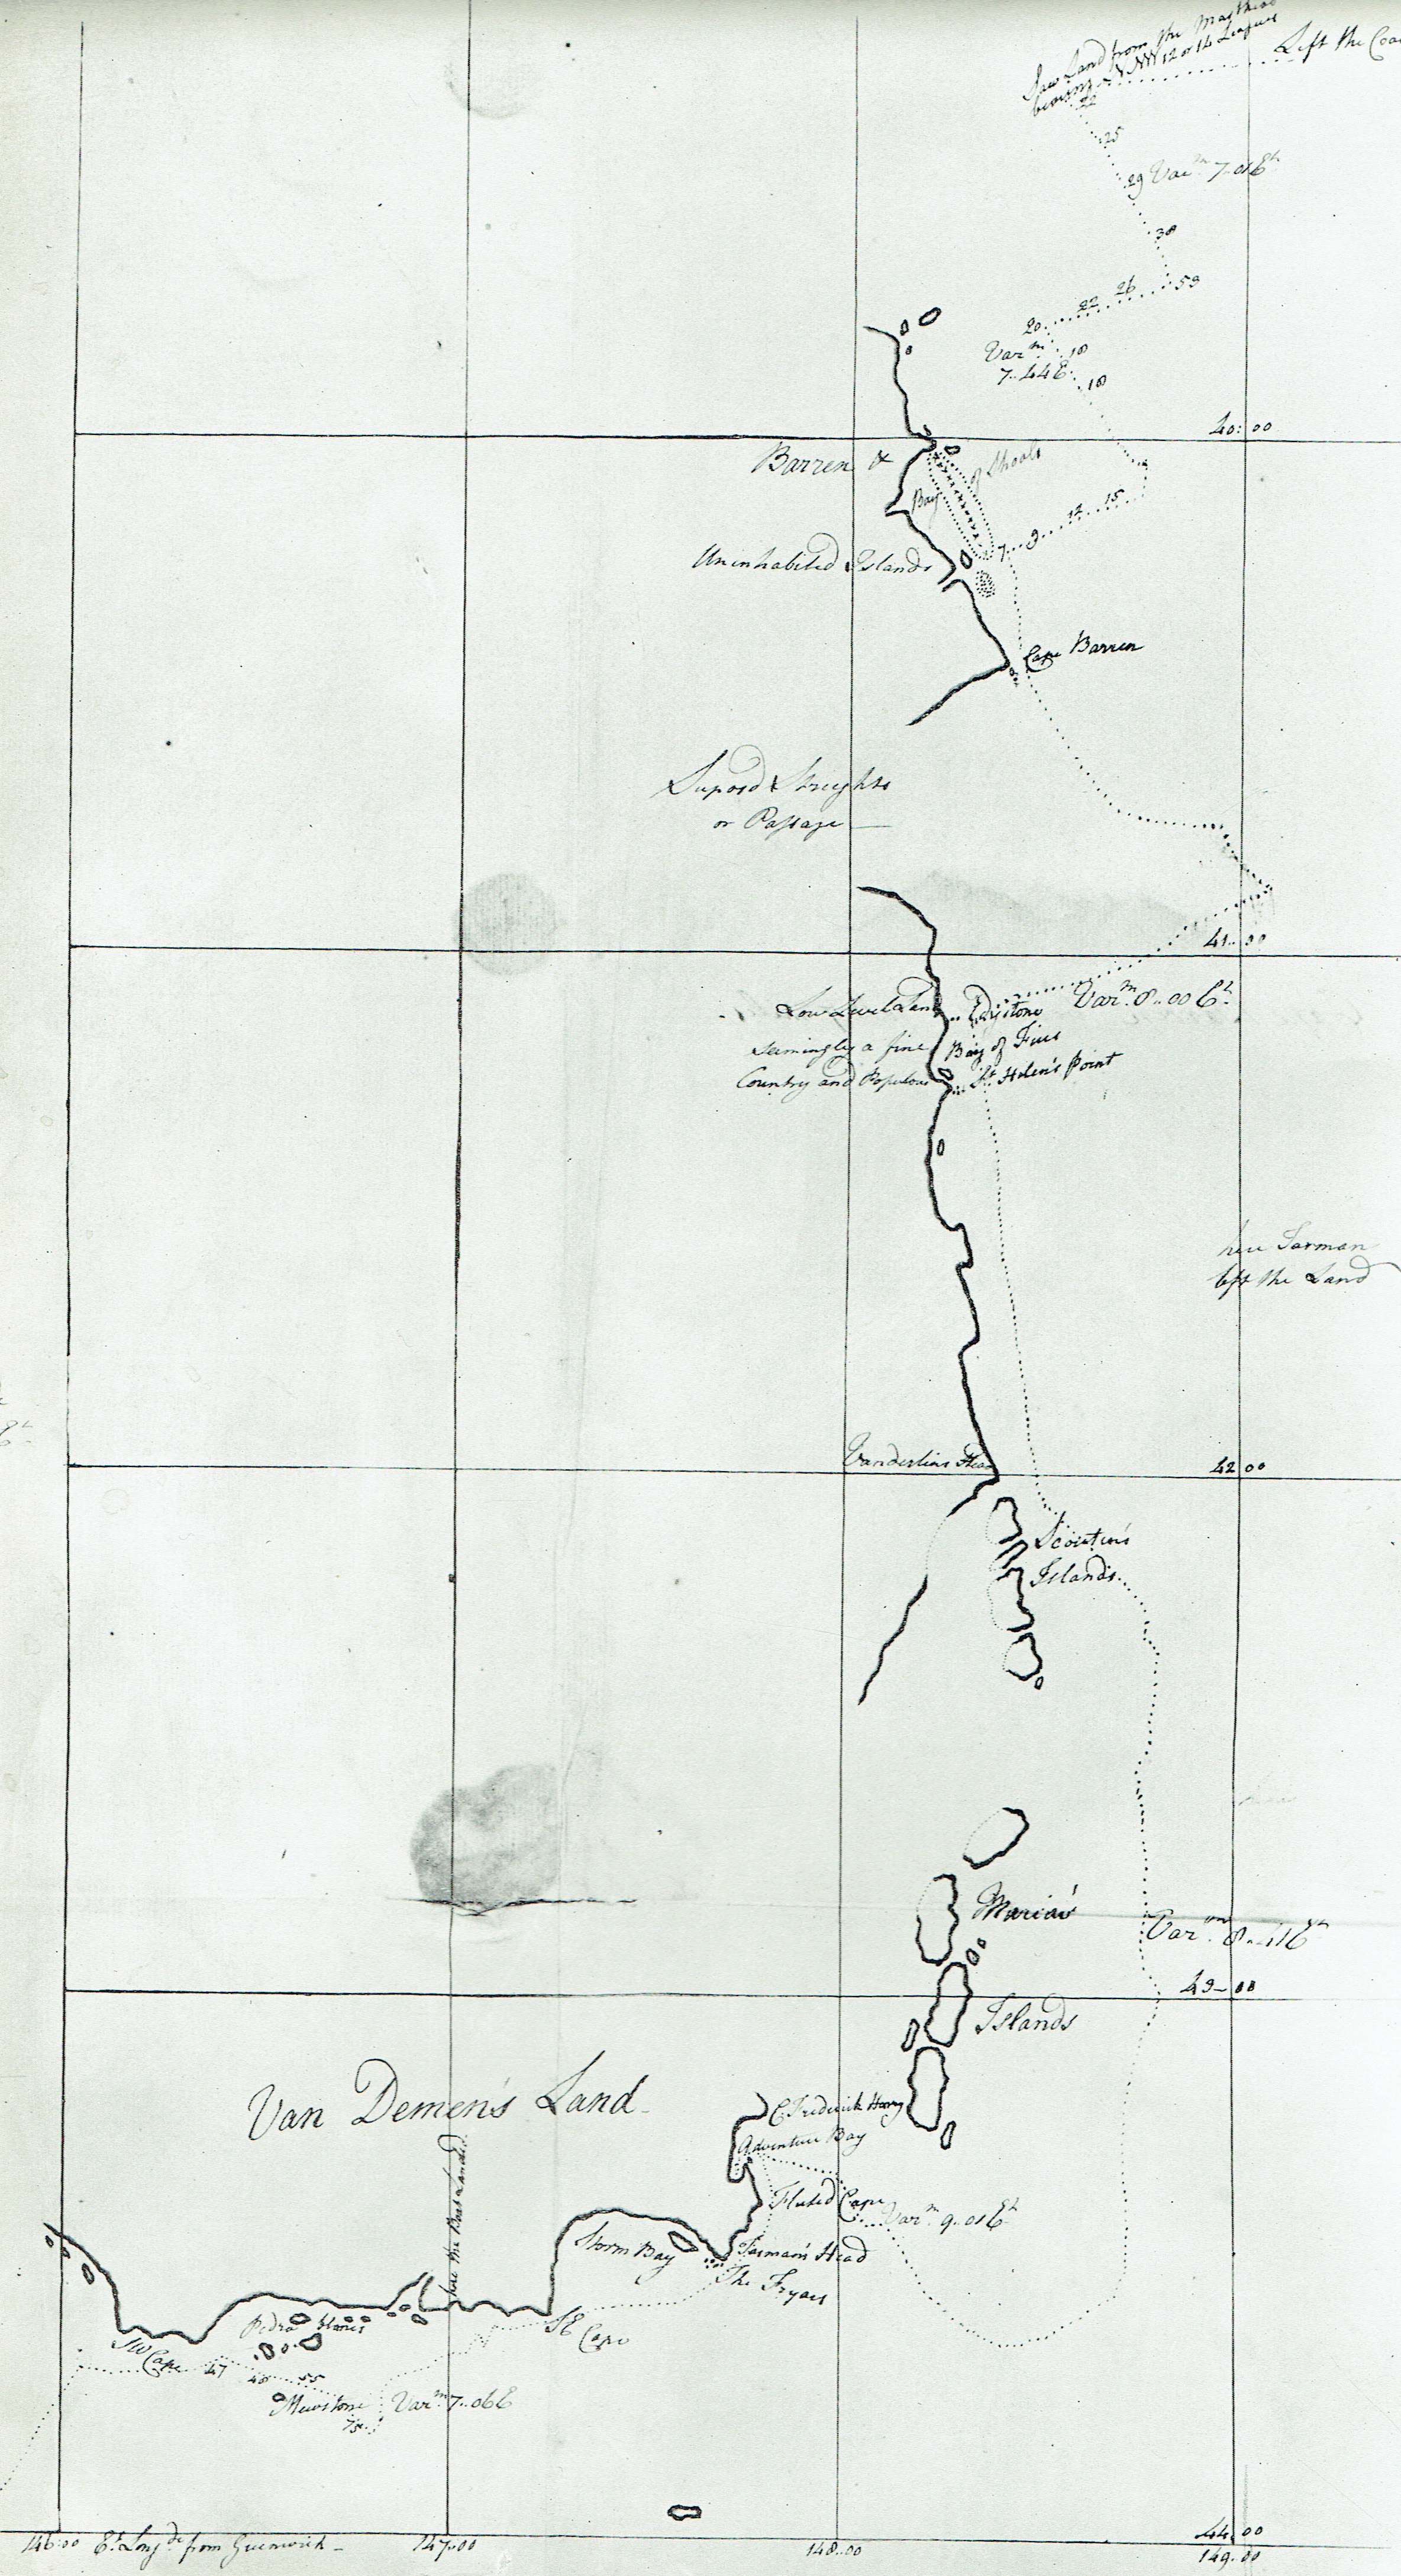 Saw Land from the Masthead
bearing NNW 12 or 14 Leagues
Left the Coa
22
25
29 Varn. 7..01 Et
30
53
26
22
20
Varn.
7..44 E.
18
18
40:00
Barren &
Bay of Shoals
15
12
9
7
Uninhabited Islands
Cape Barren
Suposd Streights
or Passage
41..00
Low Level Land
Edystone
Varn. 8..00 Et
Seemingly a fine
Bay of Fires
Country and Populous
St Helen's Point
here Tasman
left the Land
Vanderlins Head
42 00
Scouten's
Islands
Maria's
Varn. 8..11 Et
43-00
Islands
Van Demen's Land
C Frederick Henry
Adventure Bay
here the Boat Landed
Fluted Cape
Varn. 9..01 Et
Storm Bay
Tasman's Head
The Fryars
SE Cape
Pedra Blanca
SW Cape
47
48
55
Mewstone
75
Varn. 7..06 E
44..00
146:00
Et. Longde. from Greenwich -
147..00
148..00
149..00